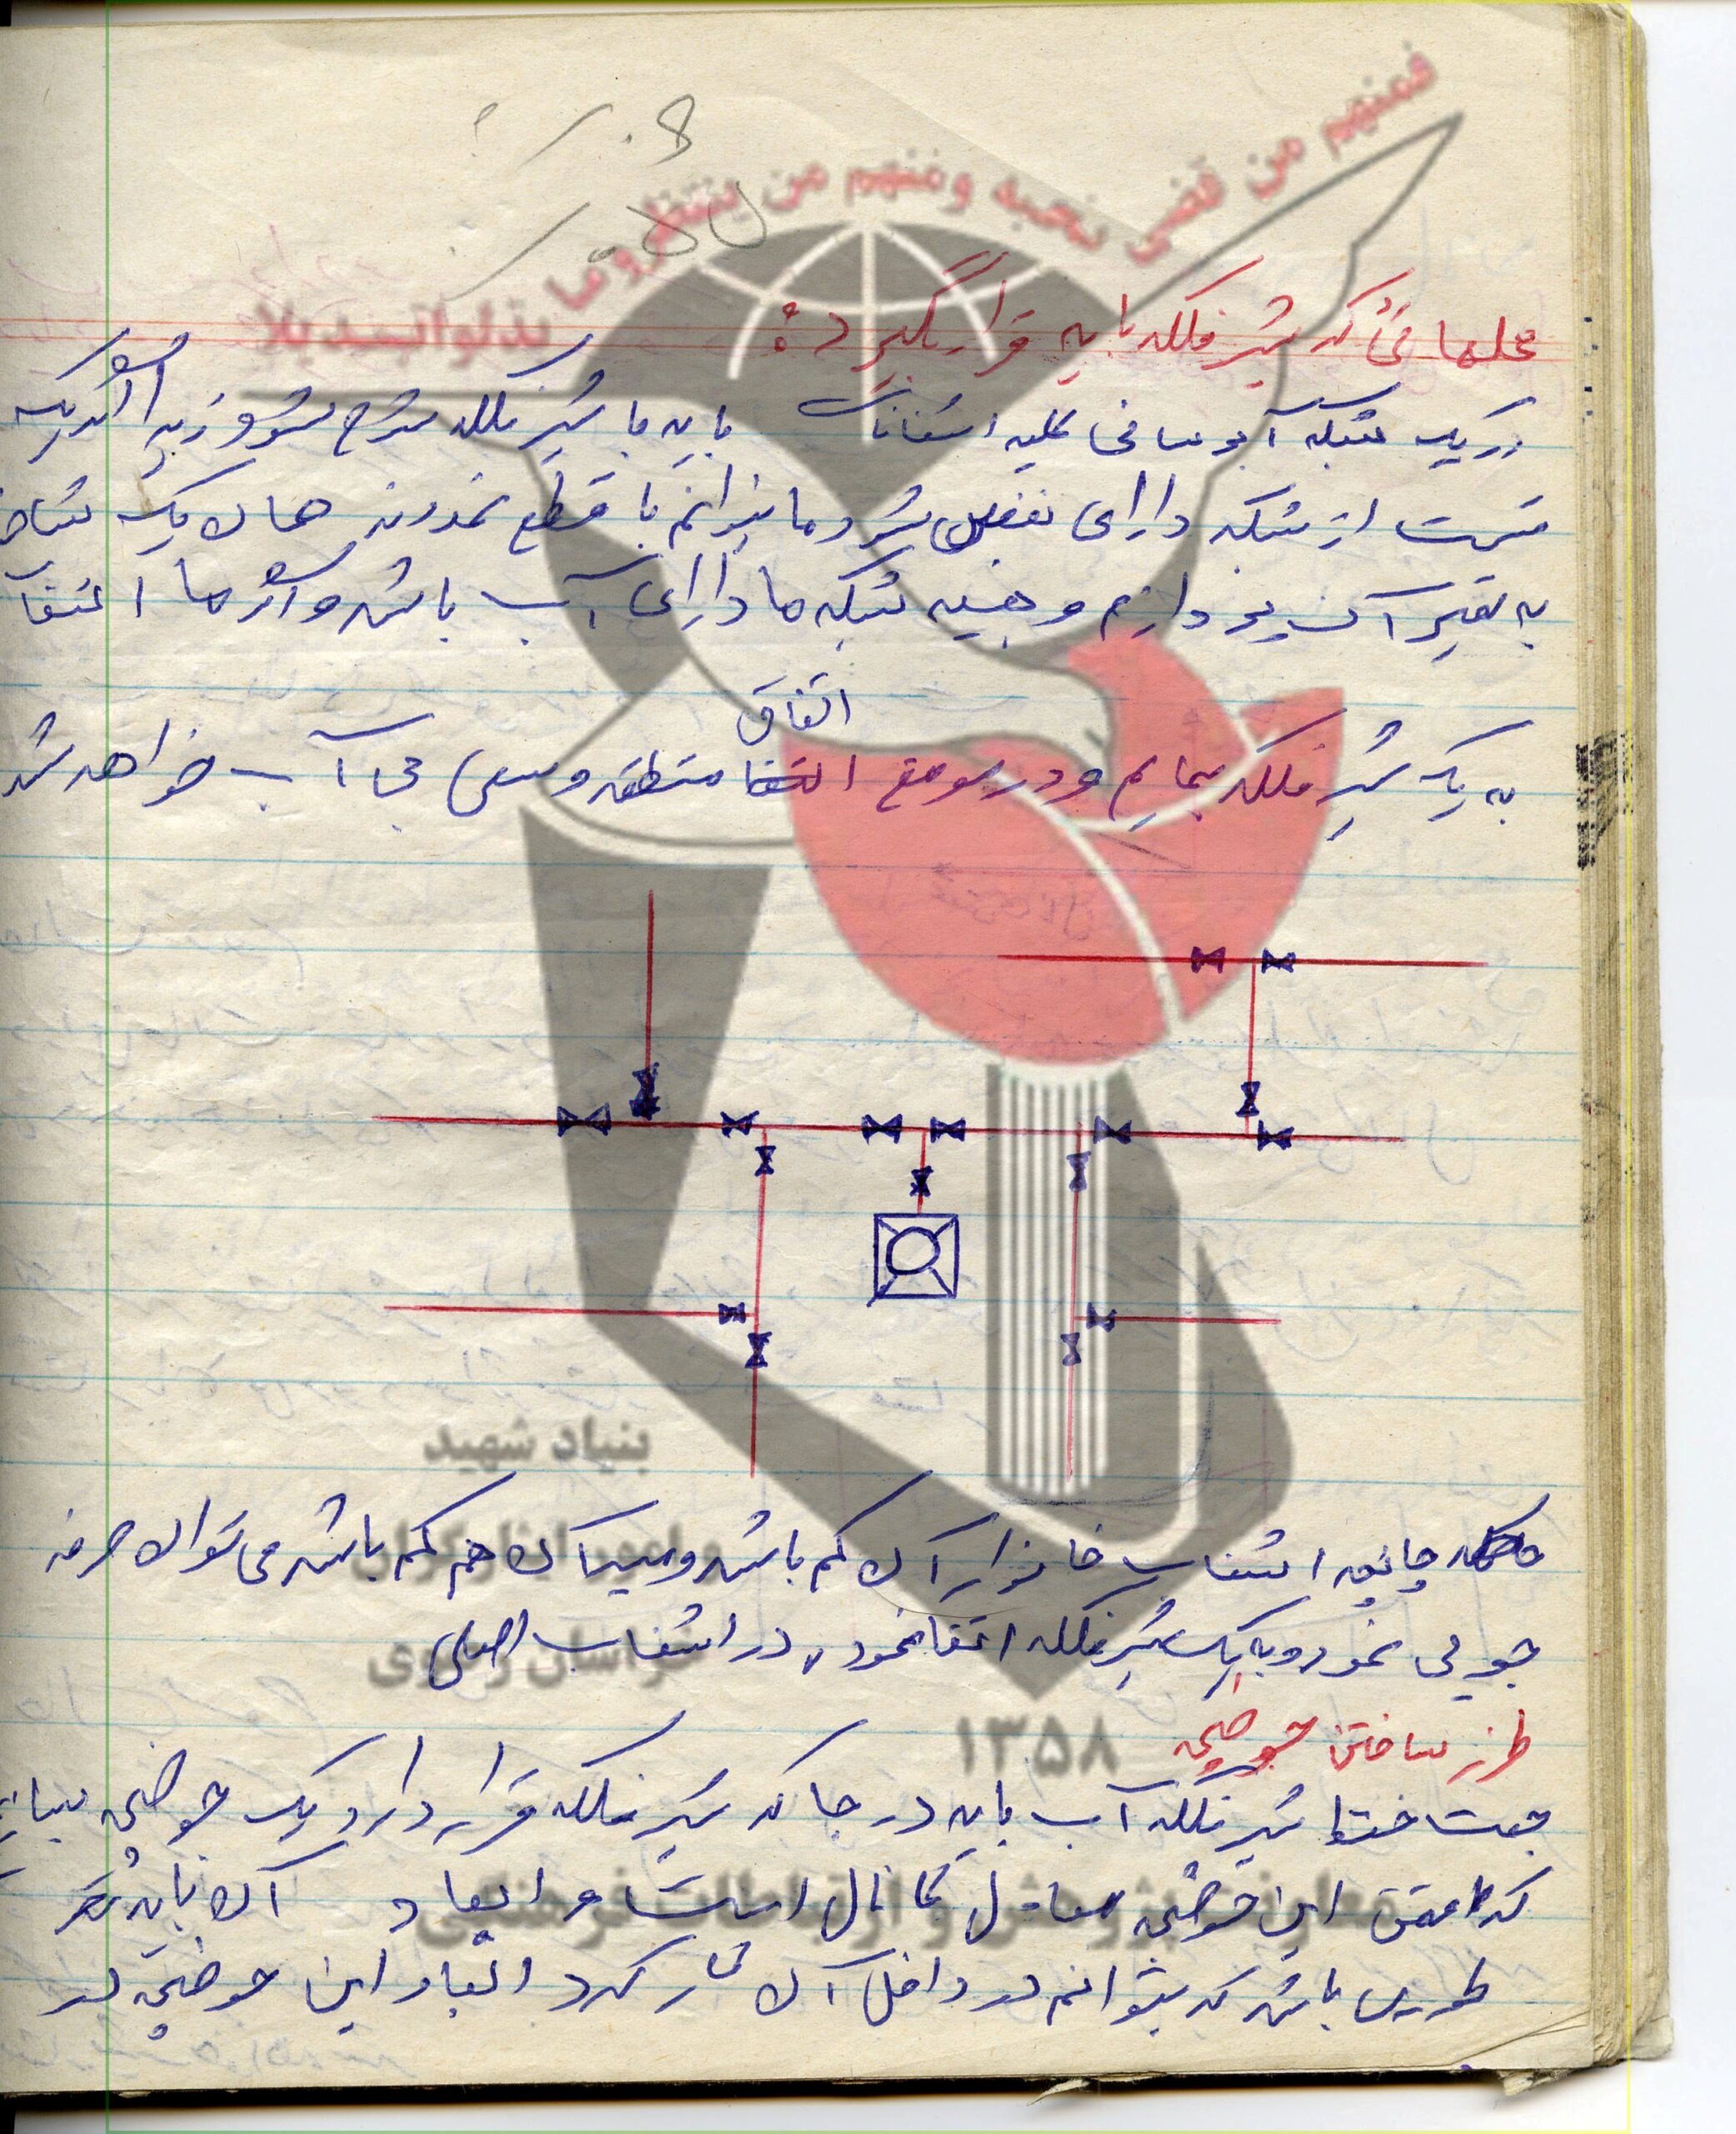 فمنهم من قضی نحبه ومنهم من ینتظر وما بدلوا تبدیلا
محلهائی که شیر فلکه باید قرار گیرد :
در یک شبکه آبرسانی کلیه انشعابات باید با شیر فلکه شروع شود زیرا اگر یک
قسمت از شبکه دارای نقص شود ما بتوانیم با قطع نمودن همان یک شاخه
به تعمیر آن بپردازیم و بقیه شبکه ما دارای آب باشد و اگر ما اکتفا
اتفاق
به یک شیر فلکه بنمایم و در موقع منطقه وسیعی بی آب خواهد شد
چنانچه انشعاب خانوار آن کم باشد و مسیر آن هم کم باشد می توان صرفه
جویی نمود و به یک شیر فلکه اکتفا نمود در انشعاب اصلی
طرز ساختن حوضچه
جهت حفظ شیر فلکه آب باید در جا که شیر فلکه قرار دارد یک حوضچه
که عمق این حوضچه معادل کانال است و ابعاد آن باید
طوری باشد که بتوانیم در داخل آن کار کرد ابعاد این حوضچه در
بنیاد شهید
و امور ایثارگران
خراسان رضوی
۱۳۵۸
معاونت پژوهش و ارتباطات فرهنگی